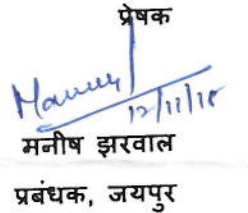 प्रेषक
12/11/18
मनीष झरवाल
प्रबंधक, जयपुर